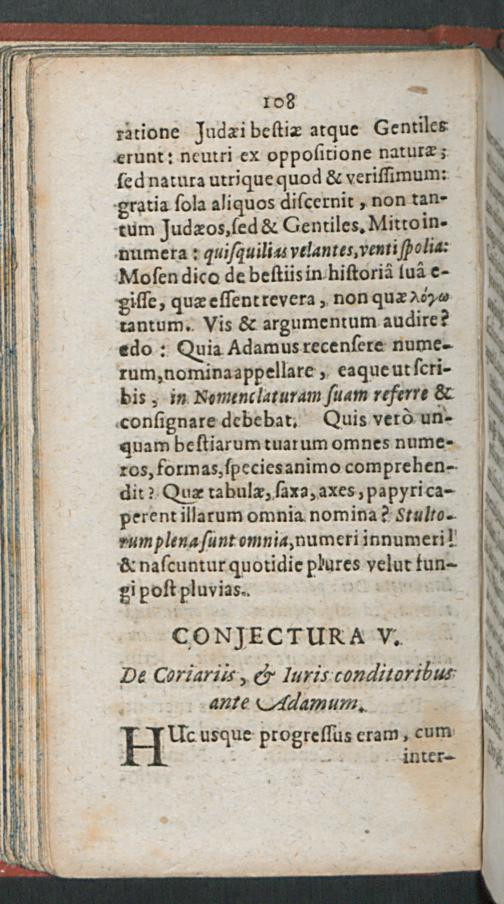 108
ratione Judæi bestiæ atque Gentiles
erunt: neutri ex oppositione naturæ;
sed natura utrique quod & verissimum:
gratia sola aliquos discernit, non tan-
tum Judæos, sed & Gentiles. Mitto in-
numera: quisquilias velantes, venti spolia:
Mosen dico de bestiis in historiâ suâ e-
gisse, quæ essent revera, non quæ λόγω
tantum. Vis & argumentum audire?
edo: Quia Adamus recensere nume-
rum, nomina appellare, eaque ut scri-
bis, in Nomenclaturam suam referre &
consignare debebat. Quis verò un-
quam bestiarum tuarum omnes nume-
ros, formas, species animo comprehen-
dit? Quæ tabulæ, saxa, axes, papyri ca-
perent illarum omnia nomina? Stulto-
rum plena sunt omnia, numeri innumeri!
& nascuntur quotidie plures velut fun-
gi post pluvias.
CONJECTURA V.
De Coriariis, & Iuris conditoribus
ante Adamum.
HUc usque progressus eram, cum
inter-